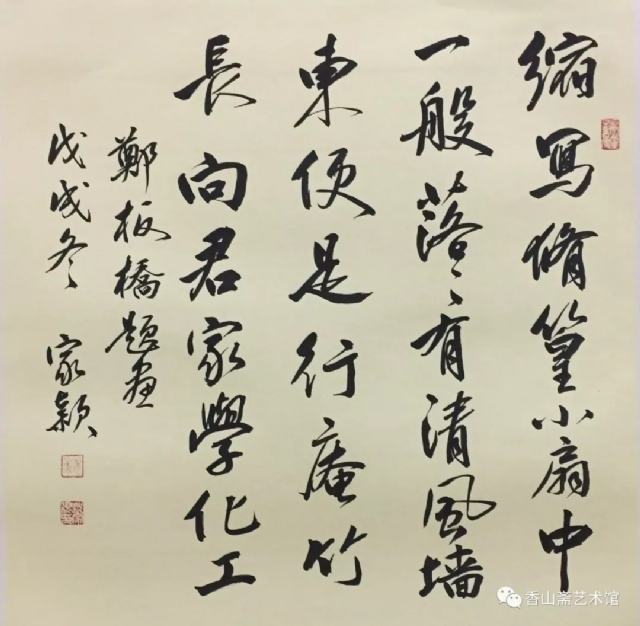 縮寫脩篁小扇中
一般落落有清風墻
東便是行庵竹
長向君家學化工
鄭板橋題画
戊戌冬 家穎
香山斋艺术馆